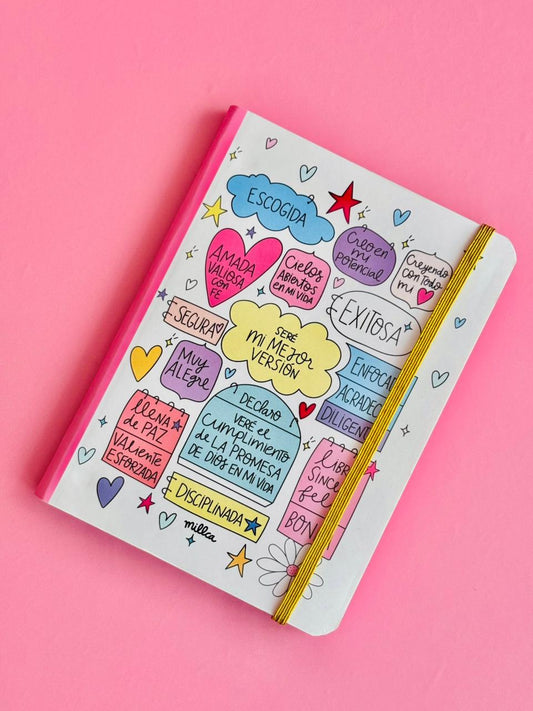 ESCOGIDA
Creo en
mi
potencial
Creyendo
con todo
mi
AMADA
VALIOSA
CON
FE
Cielos
ABIERTOS
EN MI VIDA
EXITOSA
SEGURA
SERÉ
MI MEJOR
VERSIÓN
MUY
ALEGRE
ENFOCAD
AGRADEC
DILIGEN
llena
de PAZ
VALIENTE
ESFORZADA
DECLARO
VERÉ EL
Cumplimiento
de LA PROMESA
DE DIOS EN MI VIDA
LIBR
SINCE
fel
BON
DISCIPLINADA
millca